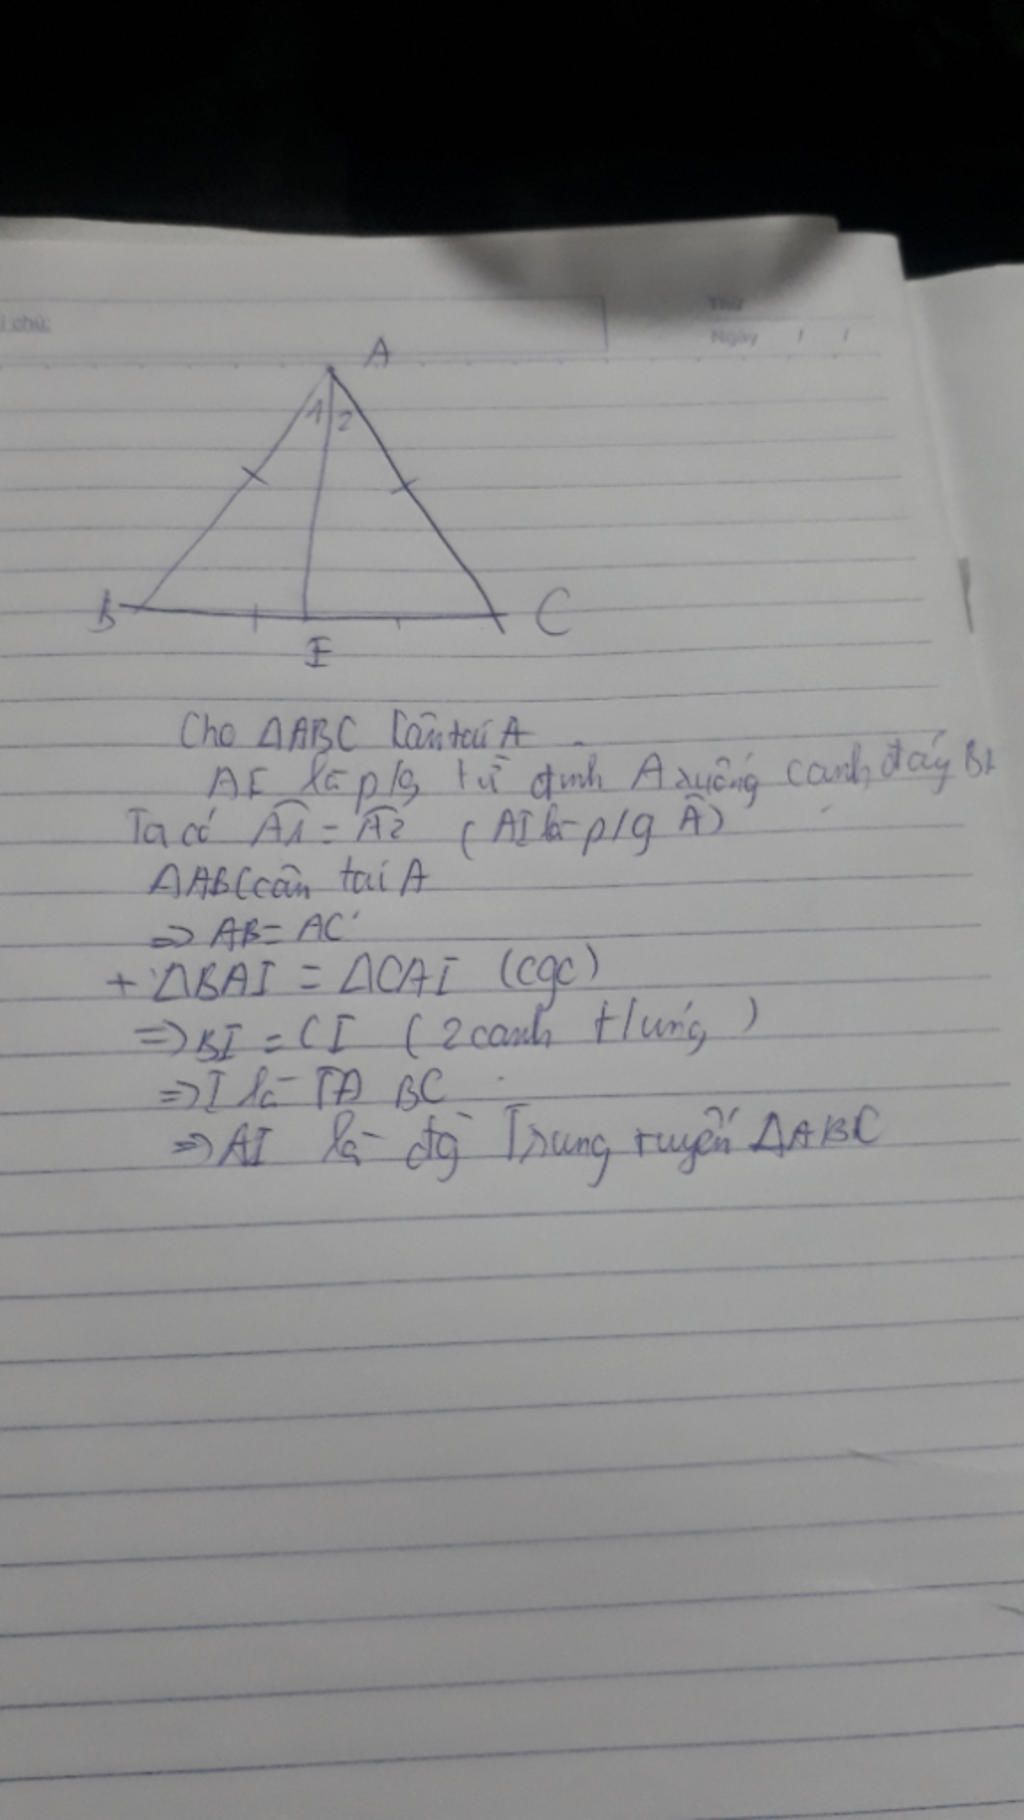 i chú:
Thứ
Ngày / /
A
1 2
B
C
I
Cho ΔABC cân tại A
AI là p/g từ đỉnh A xuống cạnh đáy BC
Ta có Â1 = Â2 (AI là p/g Â)
ΔABC cân tại A
=> AB = AC
+ ΔBAI = ΔCAI (cgc)
=> BI = CI (2 cạnh t/ứng)
=> I là TĐ BC
=> AI là đg Trung tuyến ΔABC